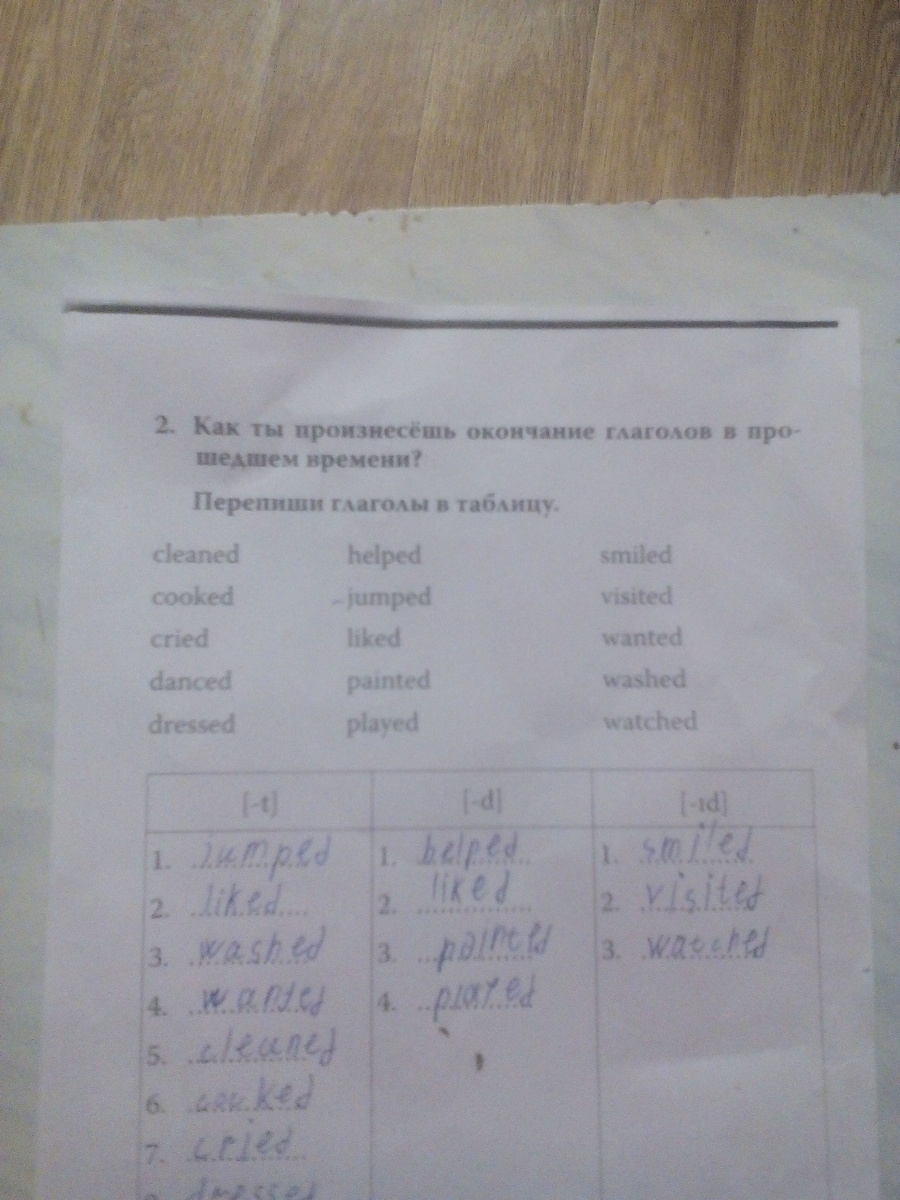 2. Как ты произнесёшь окончание глаголов в про-
шедшем времени?
Перепиши глаголы в таблицу.
cleaned helped smiled
cooked jumped visited
cried liked wanted
danced painted washed
dressed played watched
[-t] [-d] [-ɪd]
1. jumped 1. helped 1. smiled
2. liked 2. liked 2. visited
3. washed 3. painted 3. watched
4. wanted 4. played
5. cleaned
6. cooked
7. cried
dressed